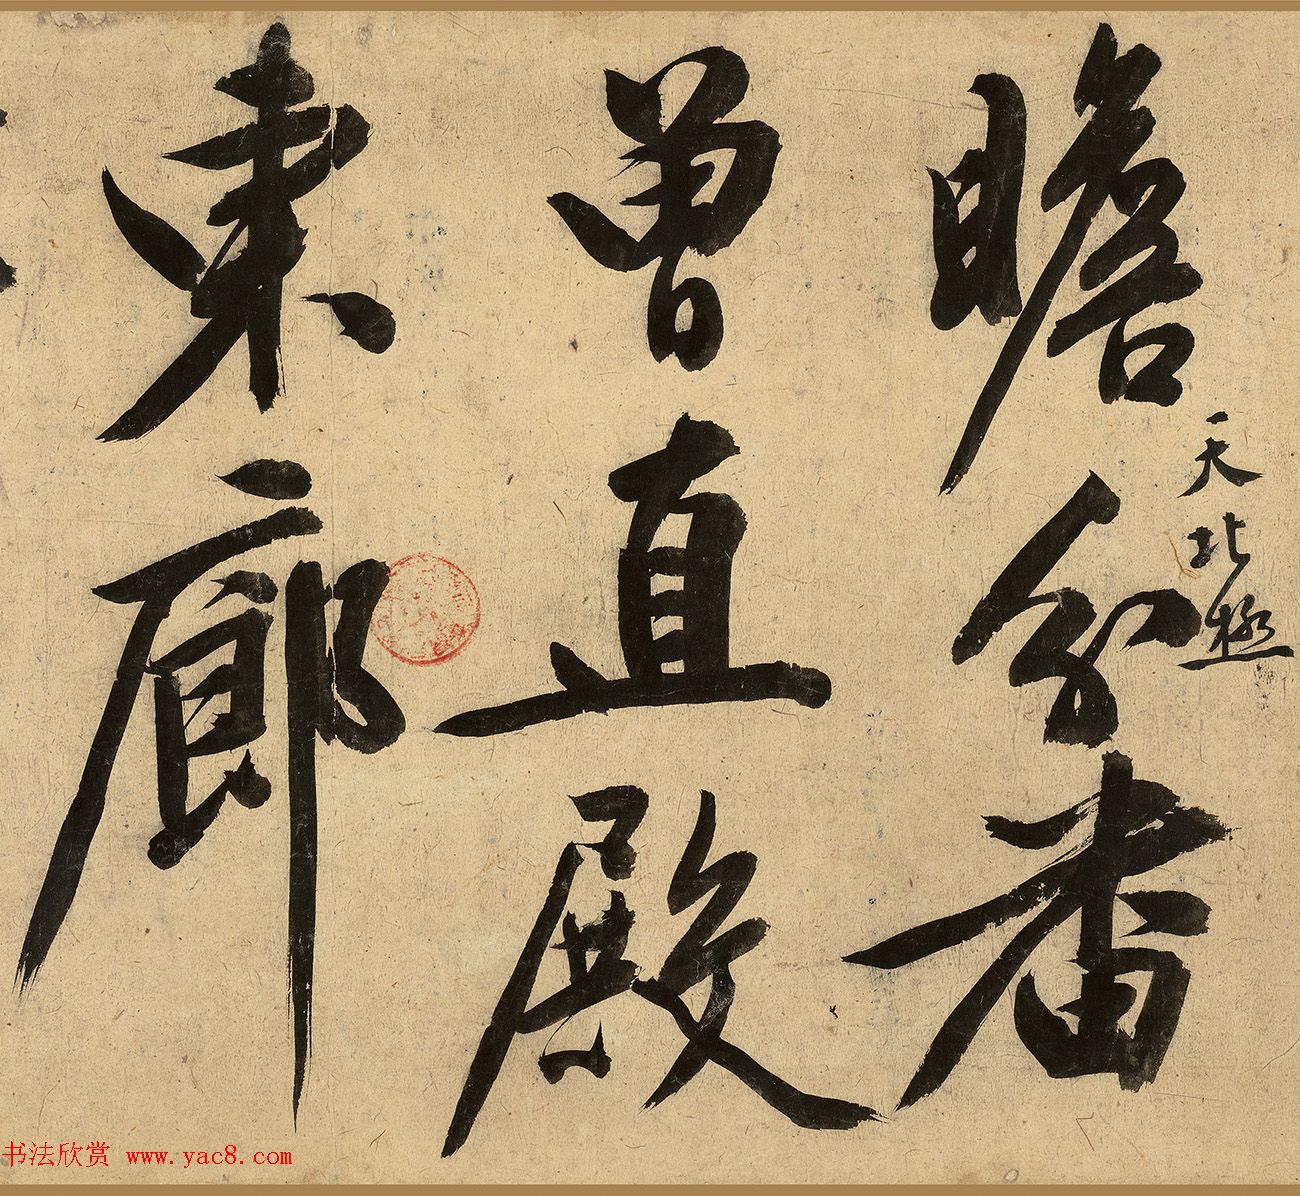 瞻天北極分番
曾直殿
東廊
书法欣赏 www.yac8.com